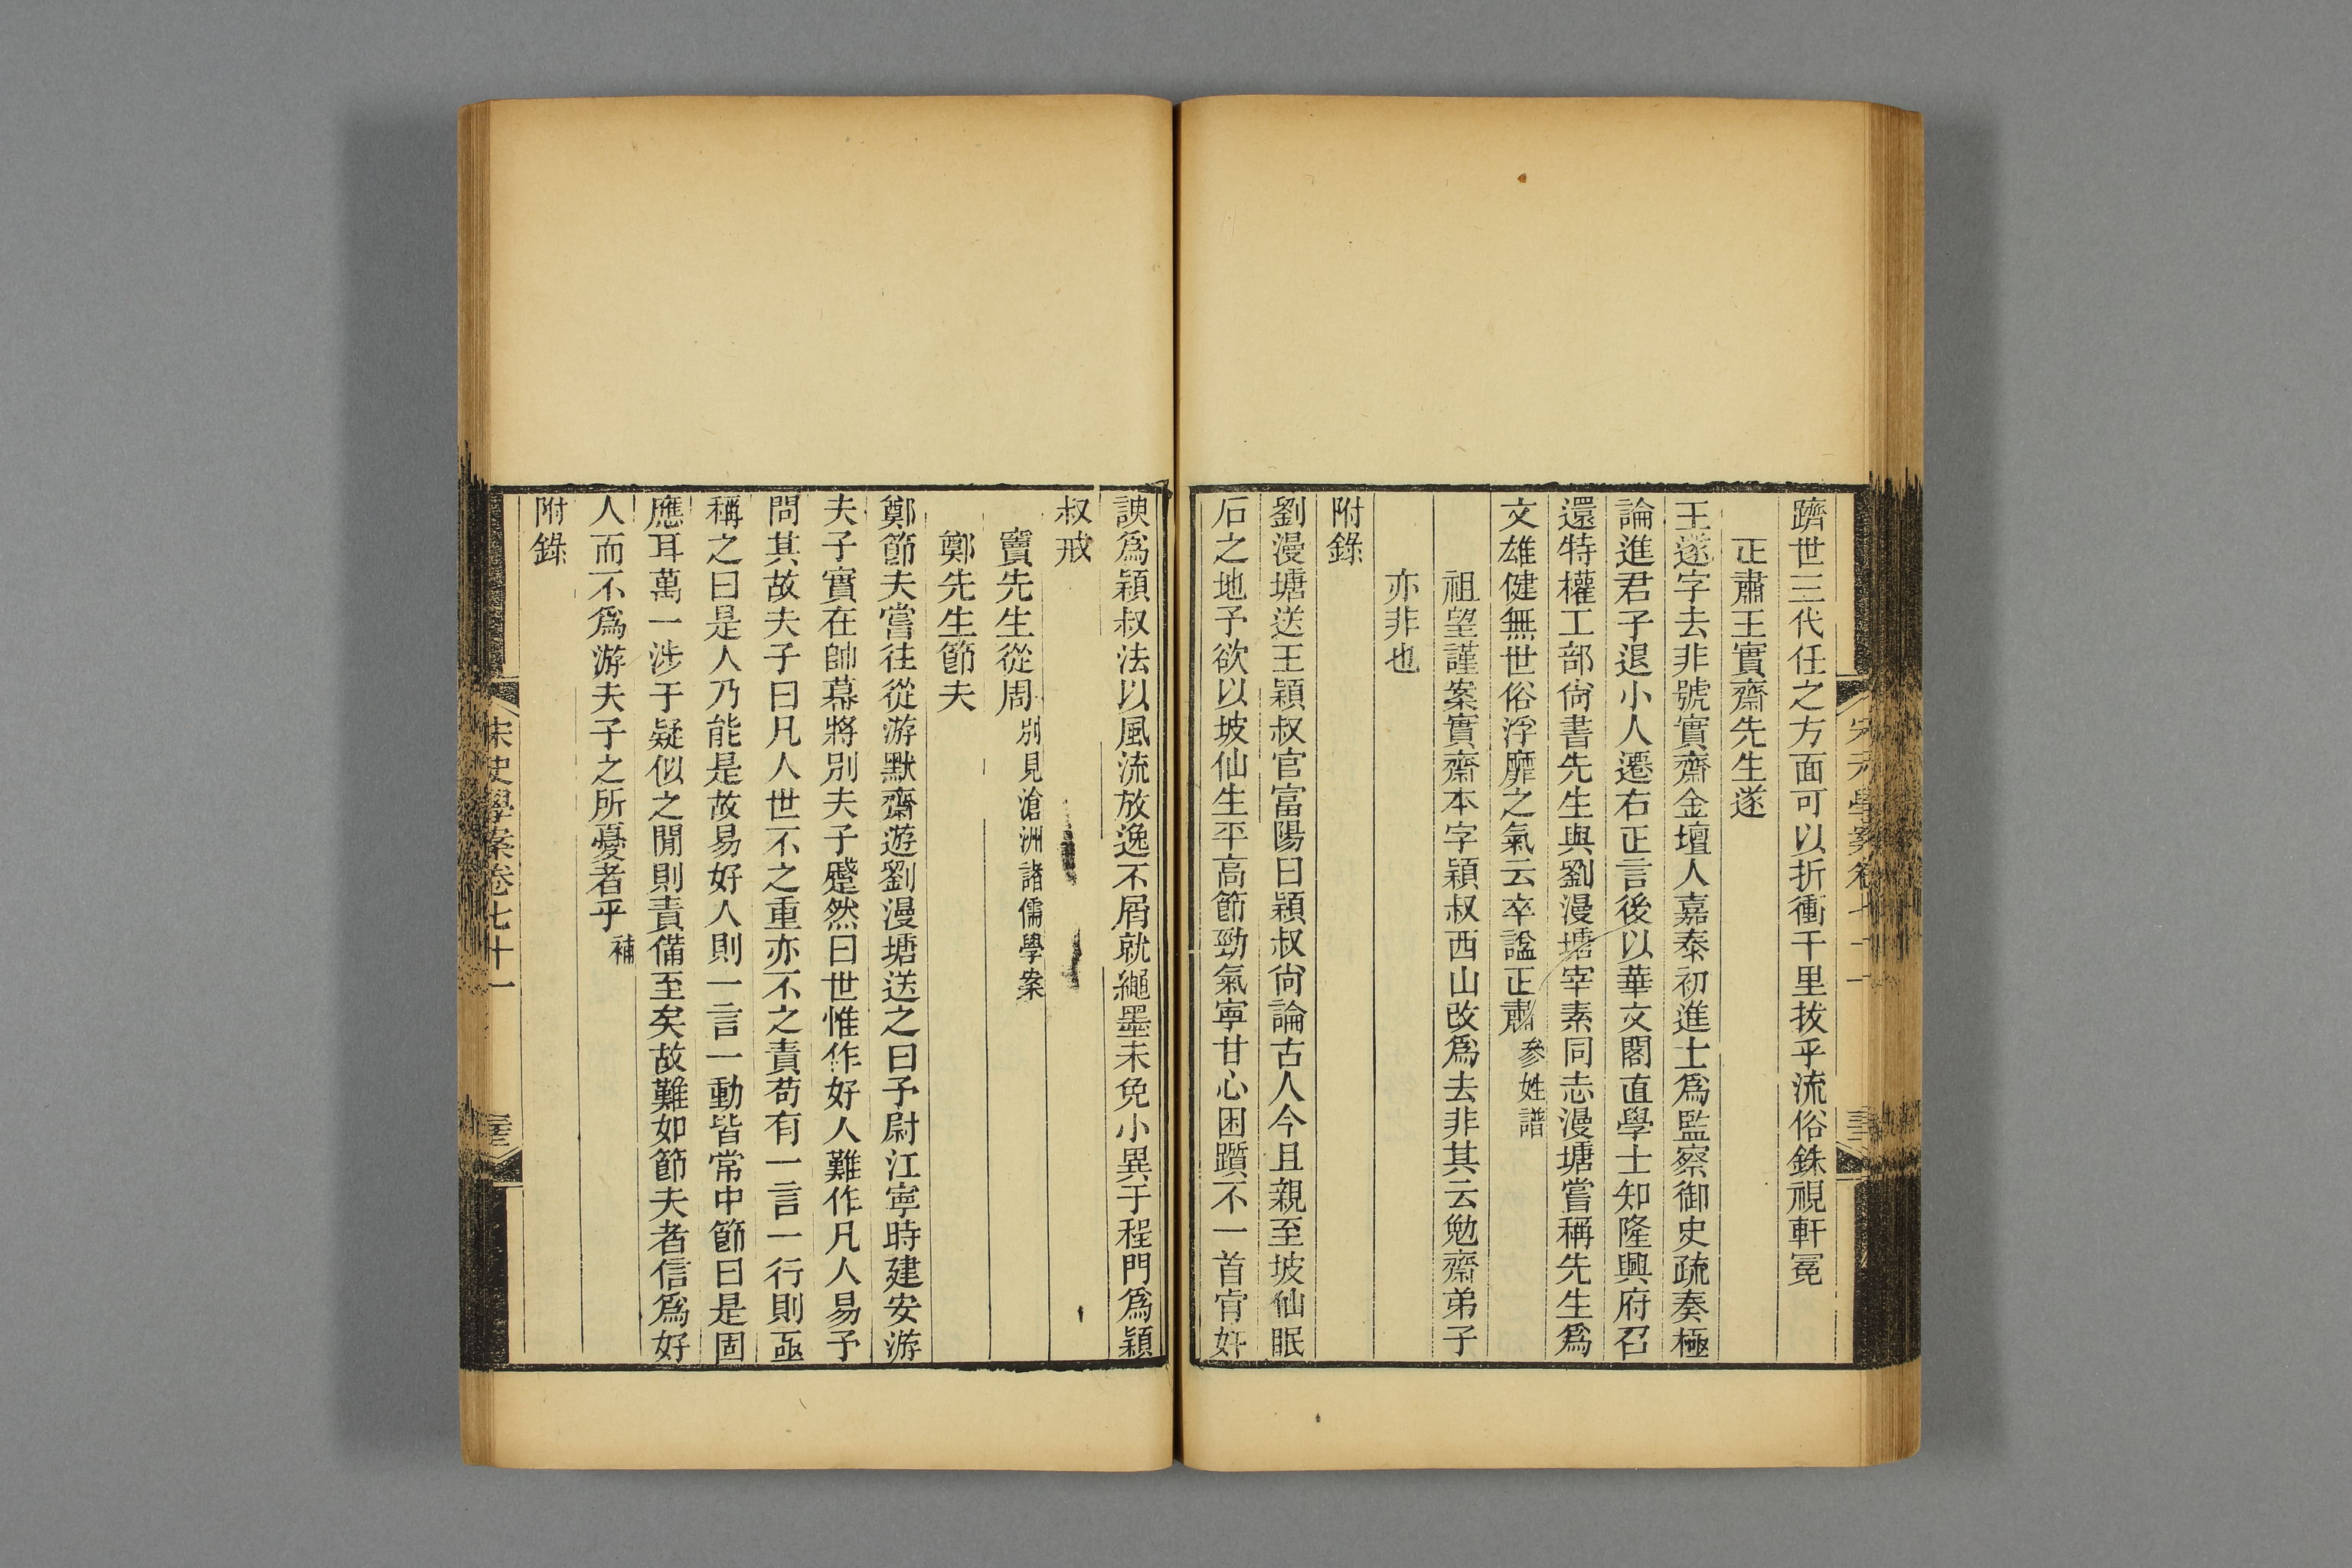 躋世三代任之方面可以折衝千里拔乎流俗銖視軒冕
正肅王實齋先生遂
王遂字去非號實齋金壇人嘉泰初進士爲監察御史疏奏極
論進君子退小人遷右正言後以華文閣直學士知隆興府召
還特權工部尙書先生與劉漫塘宰素同志漫塘嘗稱先生爲
文雄健無世俗浮靡之氣云卒諡正肅參姓譜
祖望謹案實齋本字穎叔西山改爲去非其云勉齋弟子
亦非也
附錄
劉漫塘送王穎叔官富陽曰穎叔尙論古人今且親至坡仙眠
石之地予欲以坡仙生平高節勁氣寧甘心困躓不一首肯奸
諛爲穎叔法以風流放逸不屑就繩墨未免小異于程門爲穎
叔戒
竇先生從周別見滄洲諸儒學案
鄭先生節夫
鄭節夫嘗往從游默齋遊劉漫塘送之曰予尉江寧時建安游
夫子實在帥幕將別夫子蹙然曰世惟作好人難作凡人易予
問其故夫子曰凡人世不之重亦不之責苟有一言一行則亟
稱之曰是人乃能是故易好人則一言一動皆常中節曰是固
應耳萬一涉于疑似之閒則責備至矣故難如節夫者信爲好
人而不爲游夫子之所憂者乎補
附錄
宋史學案卷七十一